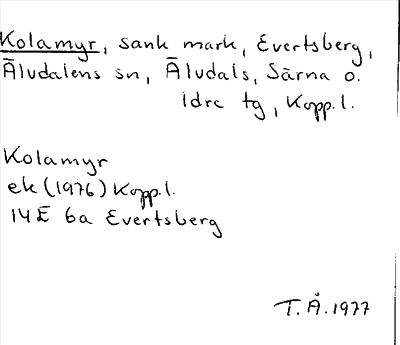 Kolamyr, sank mark, Evertsberg,
Äludalens sn, Äludals, Särna o.
Idre tg, Kopp. l.
Kolamyr
ek (1976) Kopp. l.
14E 6a Evertsberg
T. Å. 1977